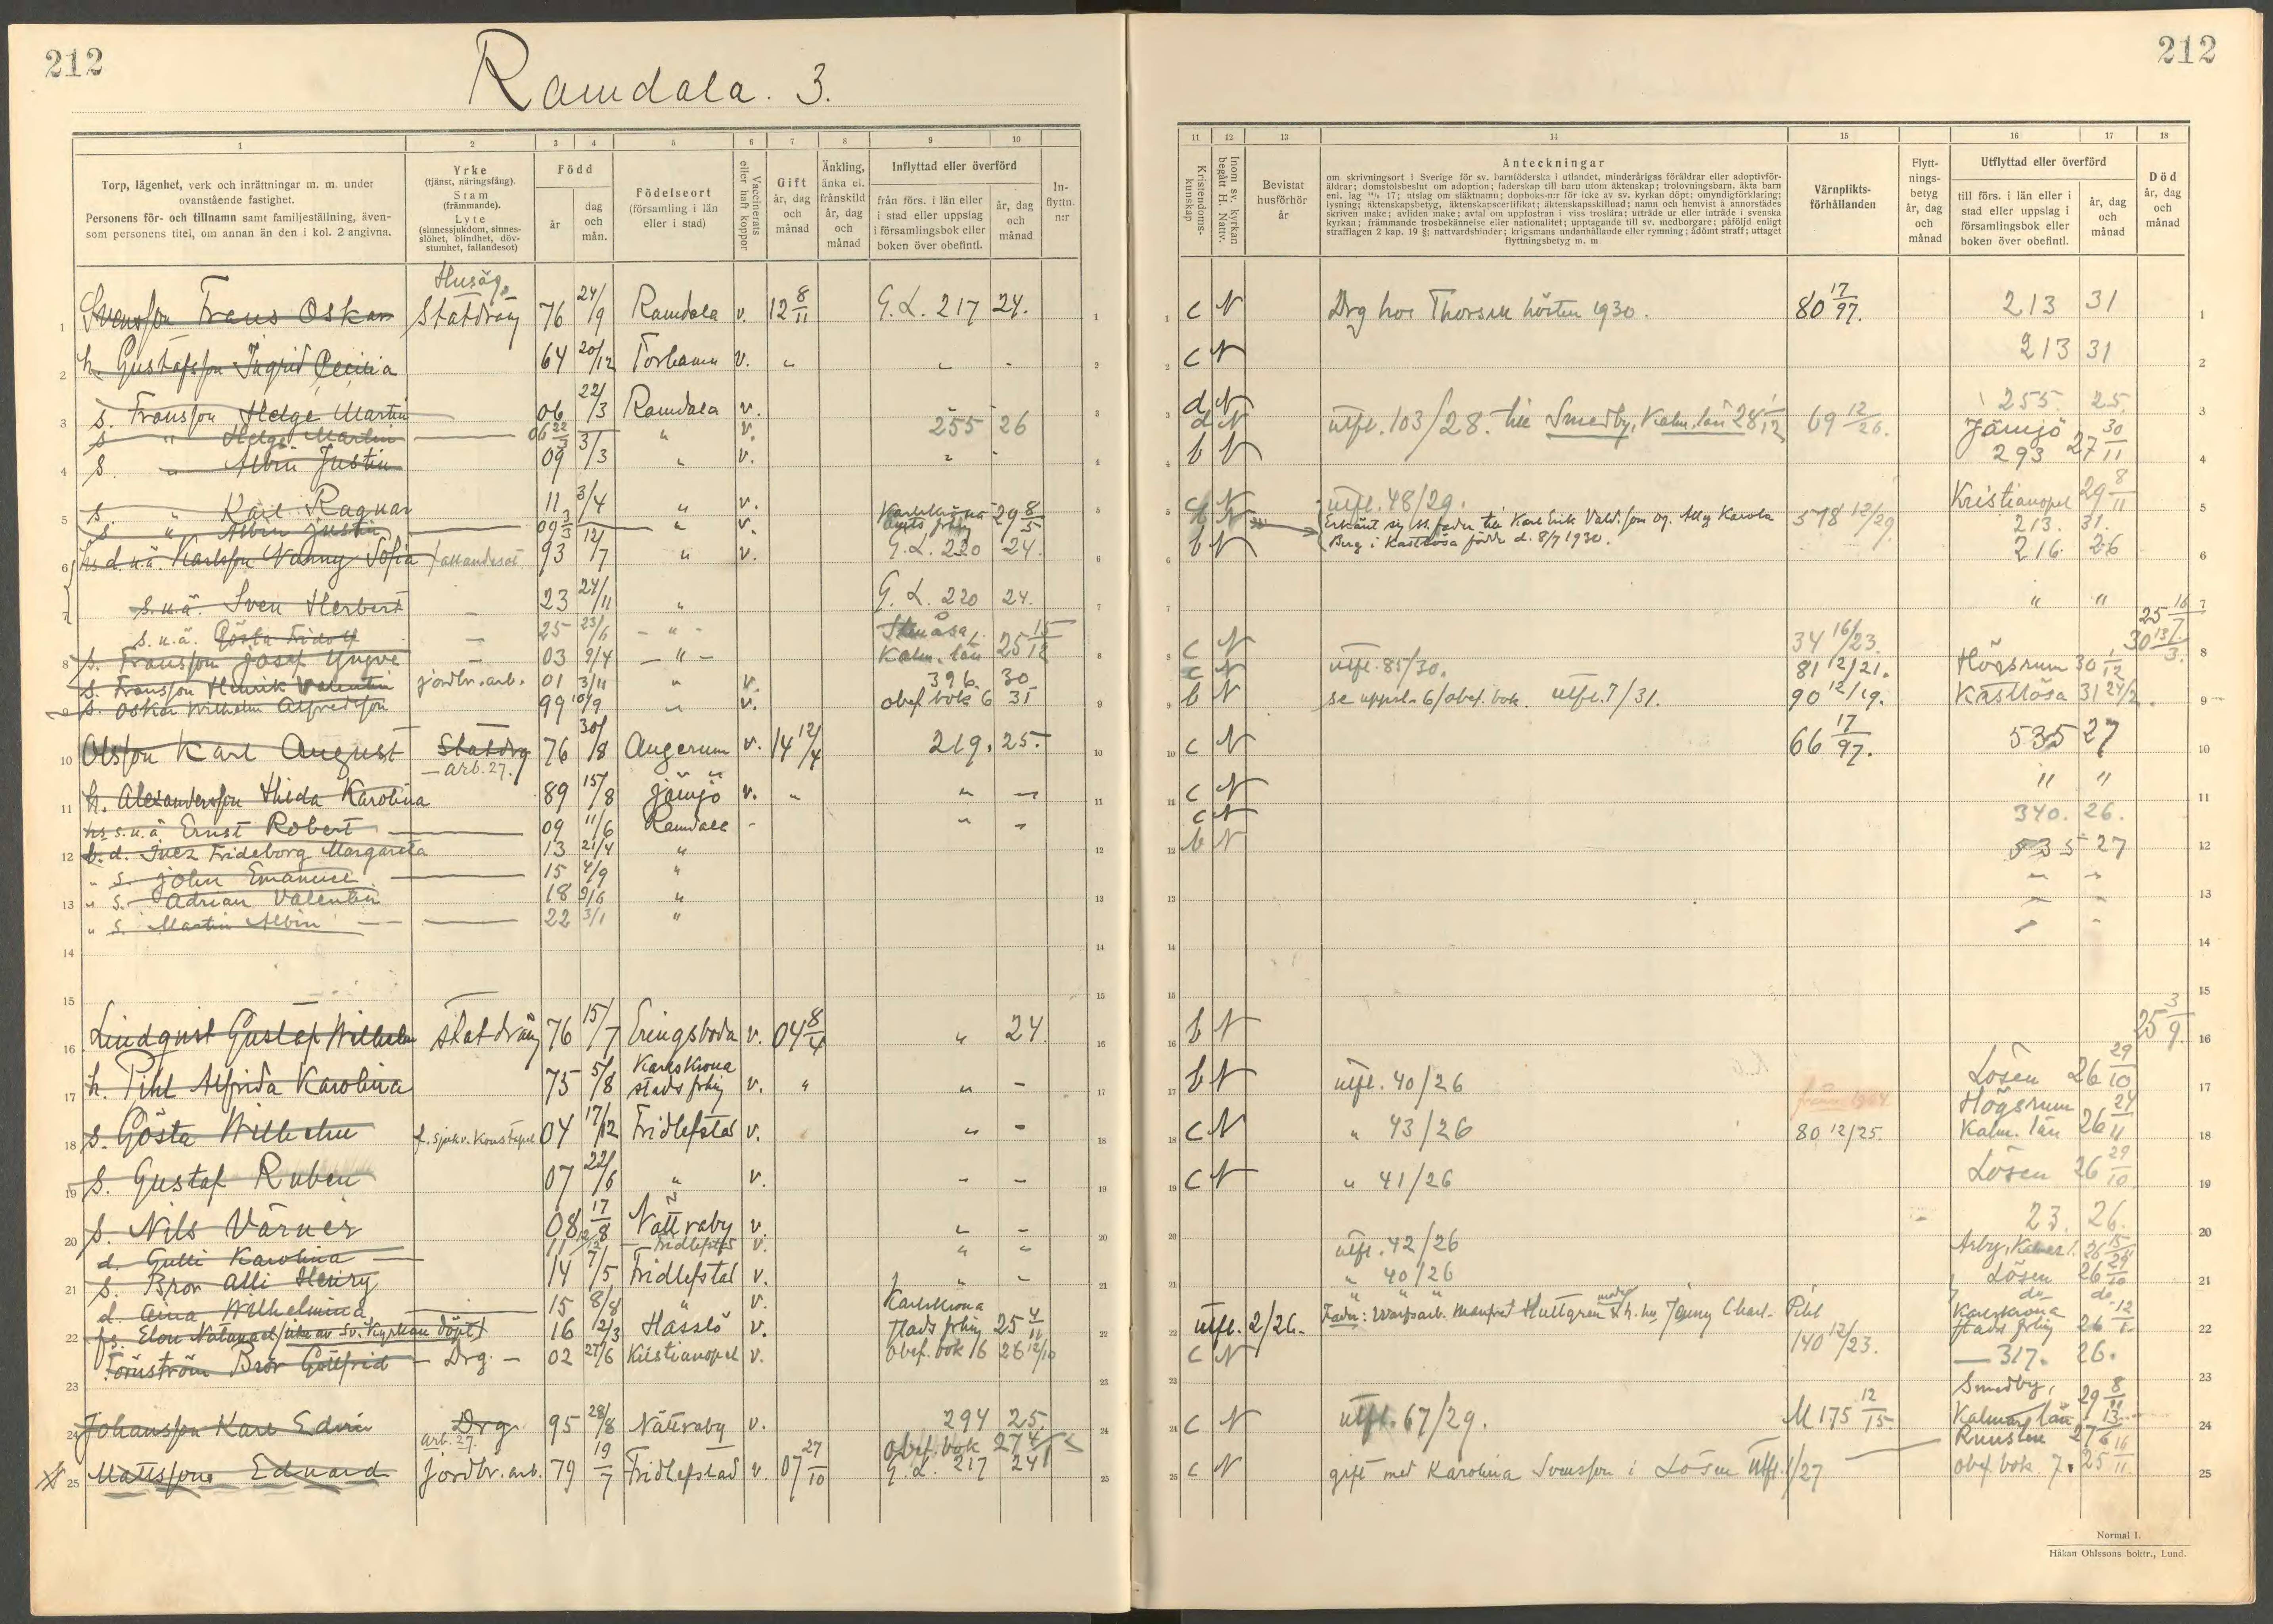 212
Ramdala. 3.
1 2 3 4 5 6 7 8 9 10
Torp, lägenhet, verk och inrättningar m. m. under
ovanstående fastighet.
Personens för- och tillnamn samt familjeställning, även-
som personens titel, om annan än den i kol. 2 angivna.
Yrke
(tjänst, näringsfång).
Stam
(främmande).
Lyte
(sinnessjukdom, sinnes-
slöhet, blindhet, döv-
stumhet, fallandesot)
Född
år
dag
och
mån.
Födelseort
(församling i län
eller i stad)
Vaccinerats
eller haft koppor
Gift
år, dag
och
månad
Änkling,
änka el.
frånskild
år, dag
och
månad
Inflyttad eller överförd
från förs. i län eller
i stad eller uppslag
i församlingsbok eller
boken över obefintl.
år, dag
och
månad
In-
flyttn.
n:r
Husäg.
1 Svensson Frans Oskar Statdräng 76 24/9 Ramdala v. 12 8/11 G.L. 217 24.
2 h. Gustafsson Ingrid Cecilia 64 20/12 Torhamn v. " " -
3 s. Fransson Helge Martin 06 22/3 Ramdala v.
s " Helge Martin 06 22/3 " v. 255 26
4 s. " Albin Justin 09 3/3 " v. " -
5 s " Karl Ragnar 11 3/4 " v. Karlskrona 29 8/5
s. " Albin Justin 09 3/3 " v.
6 hs d.u.ä. Karlsson Nanny Sofia fallandesot 93 12/7 " v. G.L. 220 24.
7 s.u.ä. Sven Herbert 23 24/11 " G.L. 220 24.
s.u.ä. Gösta Fridolf 25 23/6 - " -
8 s. Fransson Josef Yngve 03 9/4 - " - Kalm. län 25 15/12
s. Fransson Henrik Valentin jordbr.arb. 01 3/11 " v. 396. 30
9 s. Oskar Wilhelm Alfredsson 99 10/9 " v. obef. bok 6 31
10 Olsson Karl August Statdrg 76 30/8 Augerum v. 14 12/4 219. 25.
- arb. 27.
11 h. Alexandersson Hilda Karolina 89 15/8 Jämjö v. " " -
hs s.u.ä Ernst Robert 09 11/6 Ramdala - " -
12 b. d. Inez Frideborg Margareta 13 21/4 "
" s. John Emanuel 15 4/9 "
13 " s. Adrian Valentin 18 9/6 "
" s. Martin Albin 22 3/1 "
14
15
16 Lindqvist Gustaf Wilhelm statdräng 76 15/7 Eringsboda v. 04 8/4 " 24.
17 h. Pihl Alfrida Karolina 75 5/8 Karlskrona stads fshg v. " " -
18 s. Gösta Wilhelm f. sjukv. Konstapel 04 17/12 Fridlefstad v. " -
19 s. Gustaf Ruben 07 22/6 " v. " -
20 s. Nils Värner 08 17/8 Nättraby v. " -
d. Gulli Karolina 11 12/12 Fridlefstad v. " "
21 s. Bror Alli Henry 14 7/5 Fridlefstad v. " -
d. Aina Wilhelmina 15 8/8 " v. Karlskrona
22 fs. Elon Natanael (icke av Sv. Kyrkan döpt) 16 12/3 Hasslö v. stads fshg 25 4/11
Törnström Bror Gottfrid - Drg. - 02 27/6 Kristianopel v. Obef. bok 16 26 12/10
23
24 Johansson Karl Edvin Drg. 95 28/8 Nättraby v. 294 25.
arb. 27. Obef. bok 27
25 Mattsson Edvard jordbr. arb. 79 19/7 Fridlefstad v 07 27/10 G.L. 217 24
212
11 12 13 14 15 16 17 18
Kristendoms-
kunskap
Inom sv. kyrkan
begått H. Nattv.
Bevistat
husförhör
år
Anteckningar
om skrivningsort i Sverige för sv. barnföderska i utlandet, minderårigas föräldrar eller adoptivför-
äldrar; domstolsbeslut om adoption; faderskap till barn utom äktenskap; trolovningsbarn, äkta barn
enl. lag 11/6 17; utslag om släktnamn; dopboks-n:r för icke av sv. kyrkan döpt; omyndigförklaring;
lysning; äktenskapsbetyg, äktenskapscertifikat; äktenskapsskillnad; namn och hemvist å annorstädes
skriven make; avliden make; avtal om uppfostran i viss troslära; utträde ur eller inträde i svenska
kyrkan; främmande trosbekännelse eller nationalitet; upptagande till sv. medborgare; påföljd enligt
strafflagen 2 kap. 19 §; nattvardshinder; krigsmans undanhållande eller rymning; ådömt straff; uttaget
flyttningsbetyg m. m
Värnplikts-
förhållanden
Flytt-
nings-
betyg
år, dag
och
månad
Utflyttad eller överförd
till förs. i län eller i
stad eller uppslag i
församlingsbok eller
boken över obefintl.
år, dag
och
månad
Död
år, dag
och
månad
1 c N Drg hos Thorsen hösten 1930. 80 17/97. 213 31
2 c N 213 31
3 d N 255 25.
d N utfl. 103/28. till Smedby, Kalm. län 28 1/12 69 12/26. Jämjö 27 30/11
4 b N 293
5 c N utfl. 48/29. Kristianopel 29 8/11
b N Erkänt sig ss. fader till Karl Erik Vald. son og. Ally Karola 578 12/29 213. 31.
6 b N Berg i Kastlösa född d. 8/7 1930. 216 26
7 " " 25 16/7
8 c N 34 16/23. 30 13/3.
c N utfl. 85/30. 81 12/21. Högsrum 30 1/12
9 b N se uppsl. 6/obef. bok. utfl. 7/31. 90 12/19. Kastlösa 31 24/2.
10 c N 66 17/97. 535 27
11 c N " "
c N 340. 26.
12 b N 535 27
13
14
15
16 b N 25 3/9.
17 b N utfl. 40/26 Lösen 26 29/10
18 c N " 43/26 80 12/25. Högsrum Kalm. län 26 24/11
19 c N " 41/26 Lösen 26 29/10
20 23. 26.
utfl. 42/26 Arby, Kalmar l. 26 15/11
21 " 40/26 Lösen 26 29/10
" " " do do
22 utfl. 2/26. Fader: Varfsarb. Manfred Hultgren & h. hu Jenny Charl. Pihl Karlskrona stads fshg 26 12/1
c N 140 12/23. - 317. 26.
23
24 c N utfl. 67/29. M 175 12/15. Smedby, Kalmar län 29 8/11
Runsten 27
25 c N gift med Karolina Svensson i Lösen Utfl. 1/27 obef. bok. 7. 25 16/11.
Normal 1.
Håkan Ohlssons boktr., Lund.